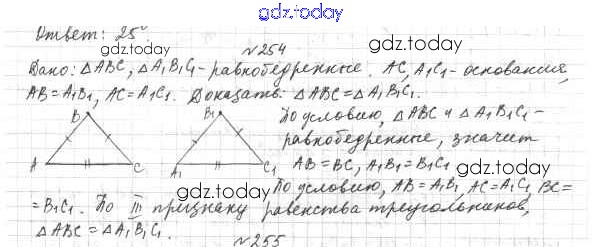 gdz.today
Ответ: 25°
gdz.today
№254
gdz.today
Дано: ΔABC, ΔA₁B₁C₁ - равнобедренные. AC, A₁C₁ - основания,
AB = A₁B₁, AC = A₁C₁. Доказать: ΔABC = ΔA₁B₁C₁.
B B₁ По условию, ΔABC и ΔA₁B₁C₁ -
gdz.today
равнобедренные, значит
AB = BC, A₁B₁ = B₁C₁
A C A₁ C₁
gdz.today
По условию, AB = A₁B₁, AC = A₁C₁, BC =
= B₁C₁. По III признаку равенства треугольников,
gdz.today
ΔABC = ΔA₁B₁C₁.
№255